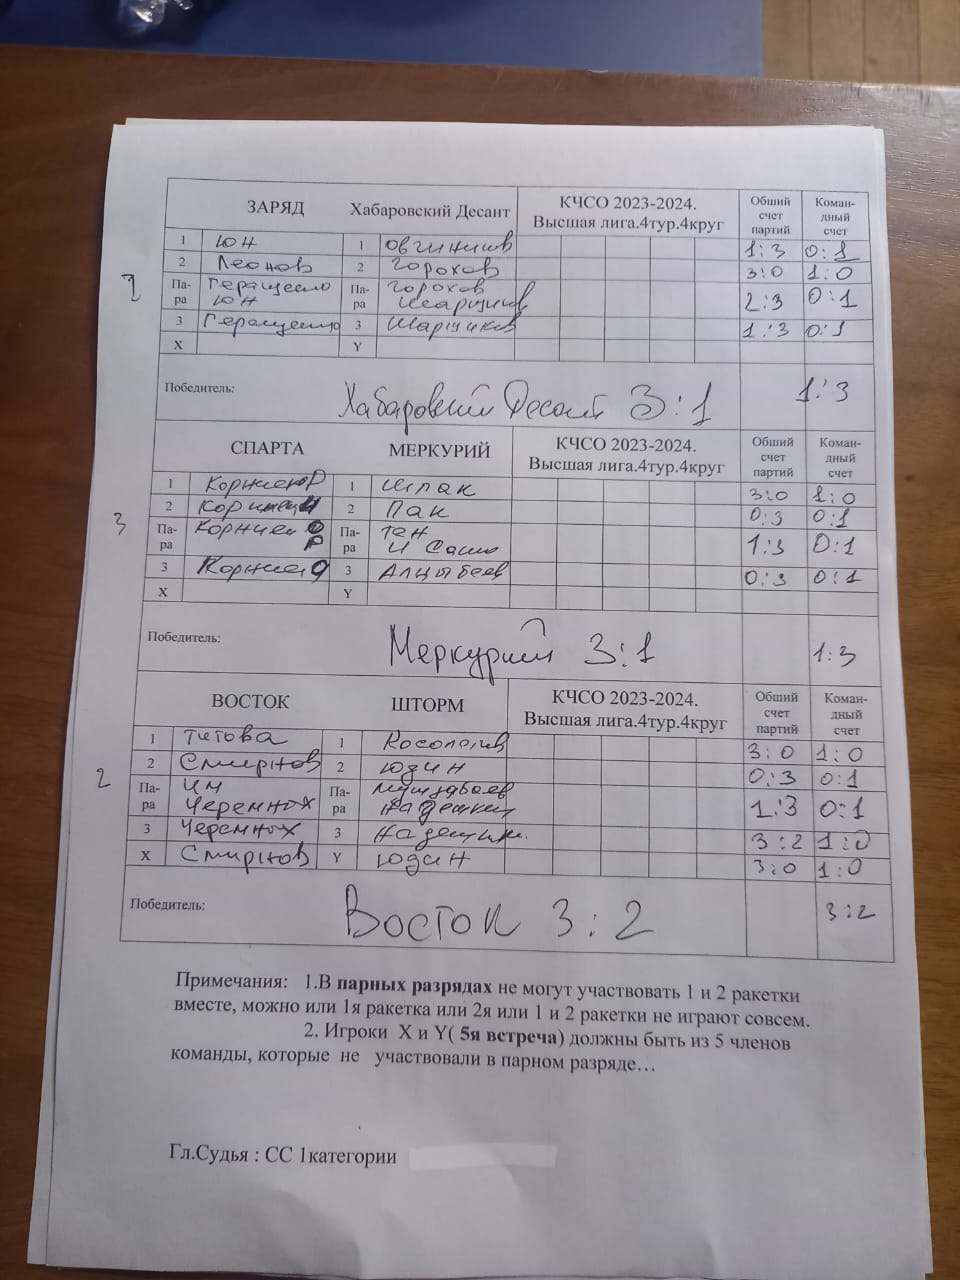 ЗАРЯД Хабаровский Десант КЧСО 2023-2024. Высшая лига.4тур.4круг Общий счет партий Коман-дный счет
1 Юн 1 1:3 0:1
2 Леонов 2 Горохов 3:0 1:0
Па-ра Юн Па-ра Горохов 2:3 0:1
3 3 Шаршуков 1:3 0:1
X Y
Победитель: Хабаровский Десант 3:1 1:3
СПАРТА МЕРКУРИЙ КЧСО 2023-2024. Высшая лига.4тур.4круг Общий счет партий Коман-дный счет
1 1 Шпак 3:0 1:0
2 2 Пак 0:3 0:1
3
Па-ра Па-ра Тен 1:3 0:1
3 3 0:3 0:1
X Y
Победитель: Меркурий 3:1 1:3
ВОСТОК ШТОРМ КЧСО 2023-2024. Высшая лига.4тур.4круг Общий счет партий Коман-дный счет
1 Титова 1 3:0 1:0
2 Смирнов 2 Юдин 0:3 0:1
2
Па-ра Им Черемных Па-ра 1:3 0:1
3 Черемных 3 3:2 1:0
X Смирнов Y Юдин 3:0 1:0
Победитель: Восток 3:2 3:2
Примечания: 1.В парных разрядах не могут участвовать 1 и 2 ракетки
вместе, можно или 1я ракетка или 2я или 1 и 2 ракетки не играют совсем.
2. Игроки X и Y( 5я встреча) должны быть из 5 членов
команды, которые не участвовали в парном разряде…
Гл.Судья : СС 1категории